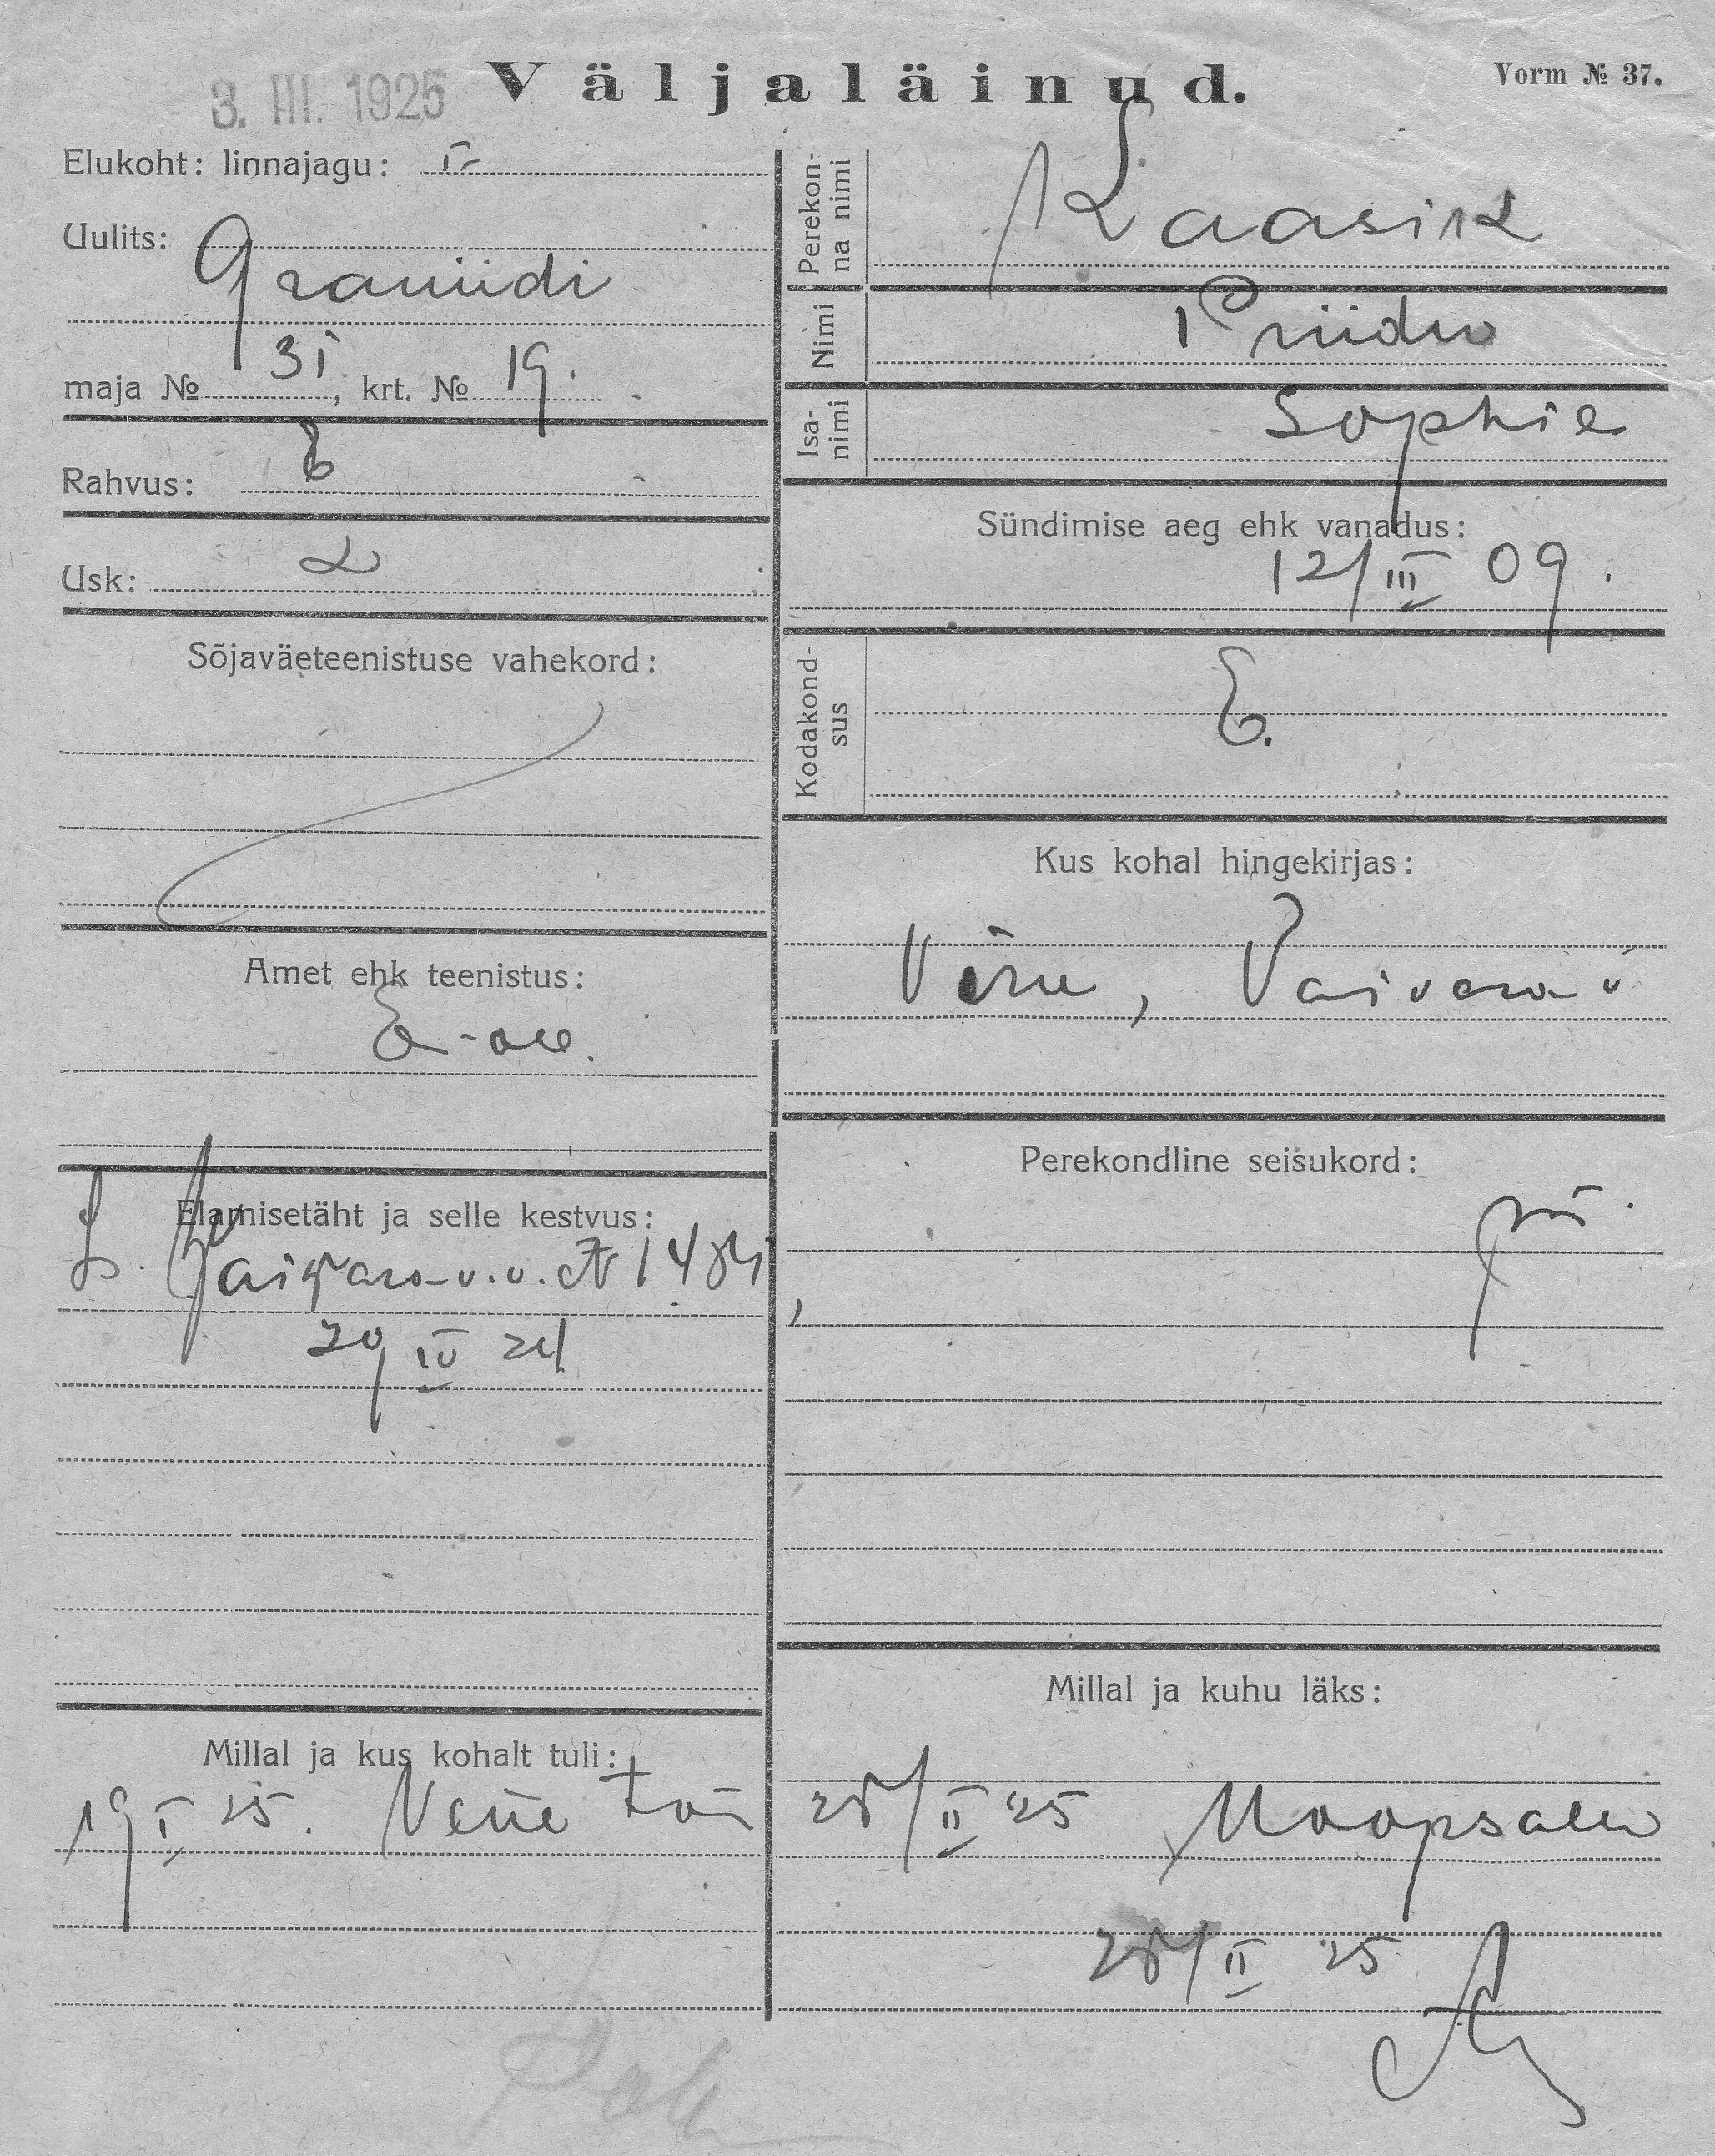 3. III. 1925
Väljaläinud.
Vorm № 37.
Elukoht: linnajagu:
Uulits: Graniidi
maja № 31, krt. № 19.
Rahvus: E
Usk: L
Sõjaväeteenistuse vahekord:
Amet ehk teenistus:
Elamisetäht ja selle kestvus:
29 IV 24
Millal ja kus kohalt tuli:
19 I 25. Vene tän
Perekonna nimi Kaasik
Nimi Priidu
Isanimi Sophie
Sündimise aeg ehk vanadus:
12/III 09.
Kodakondsus E.
Kus kohal hingekirjas:
Viru, Vaivara v
Perekondline seisukord:
Millal ja kuhu läks:
28/II 25 Haapsalu
28/II 25